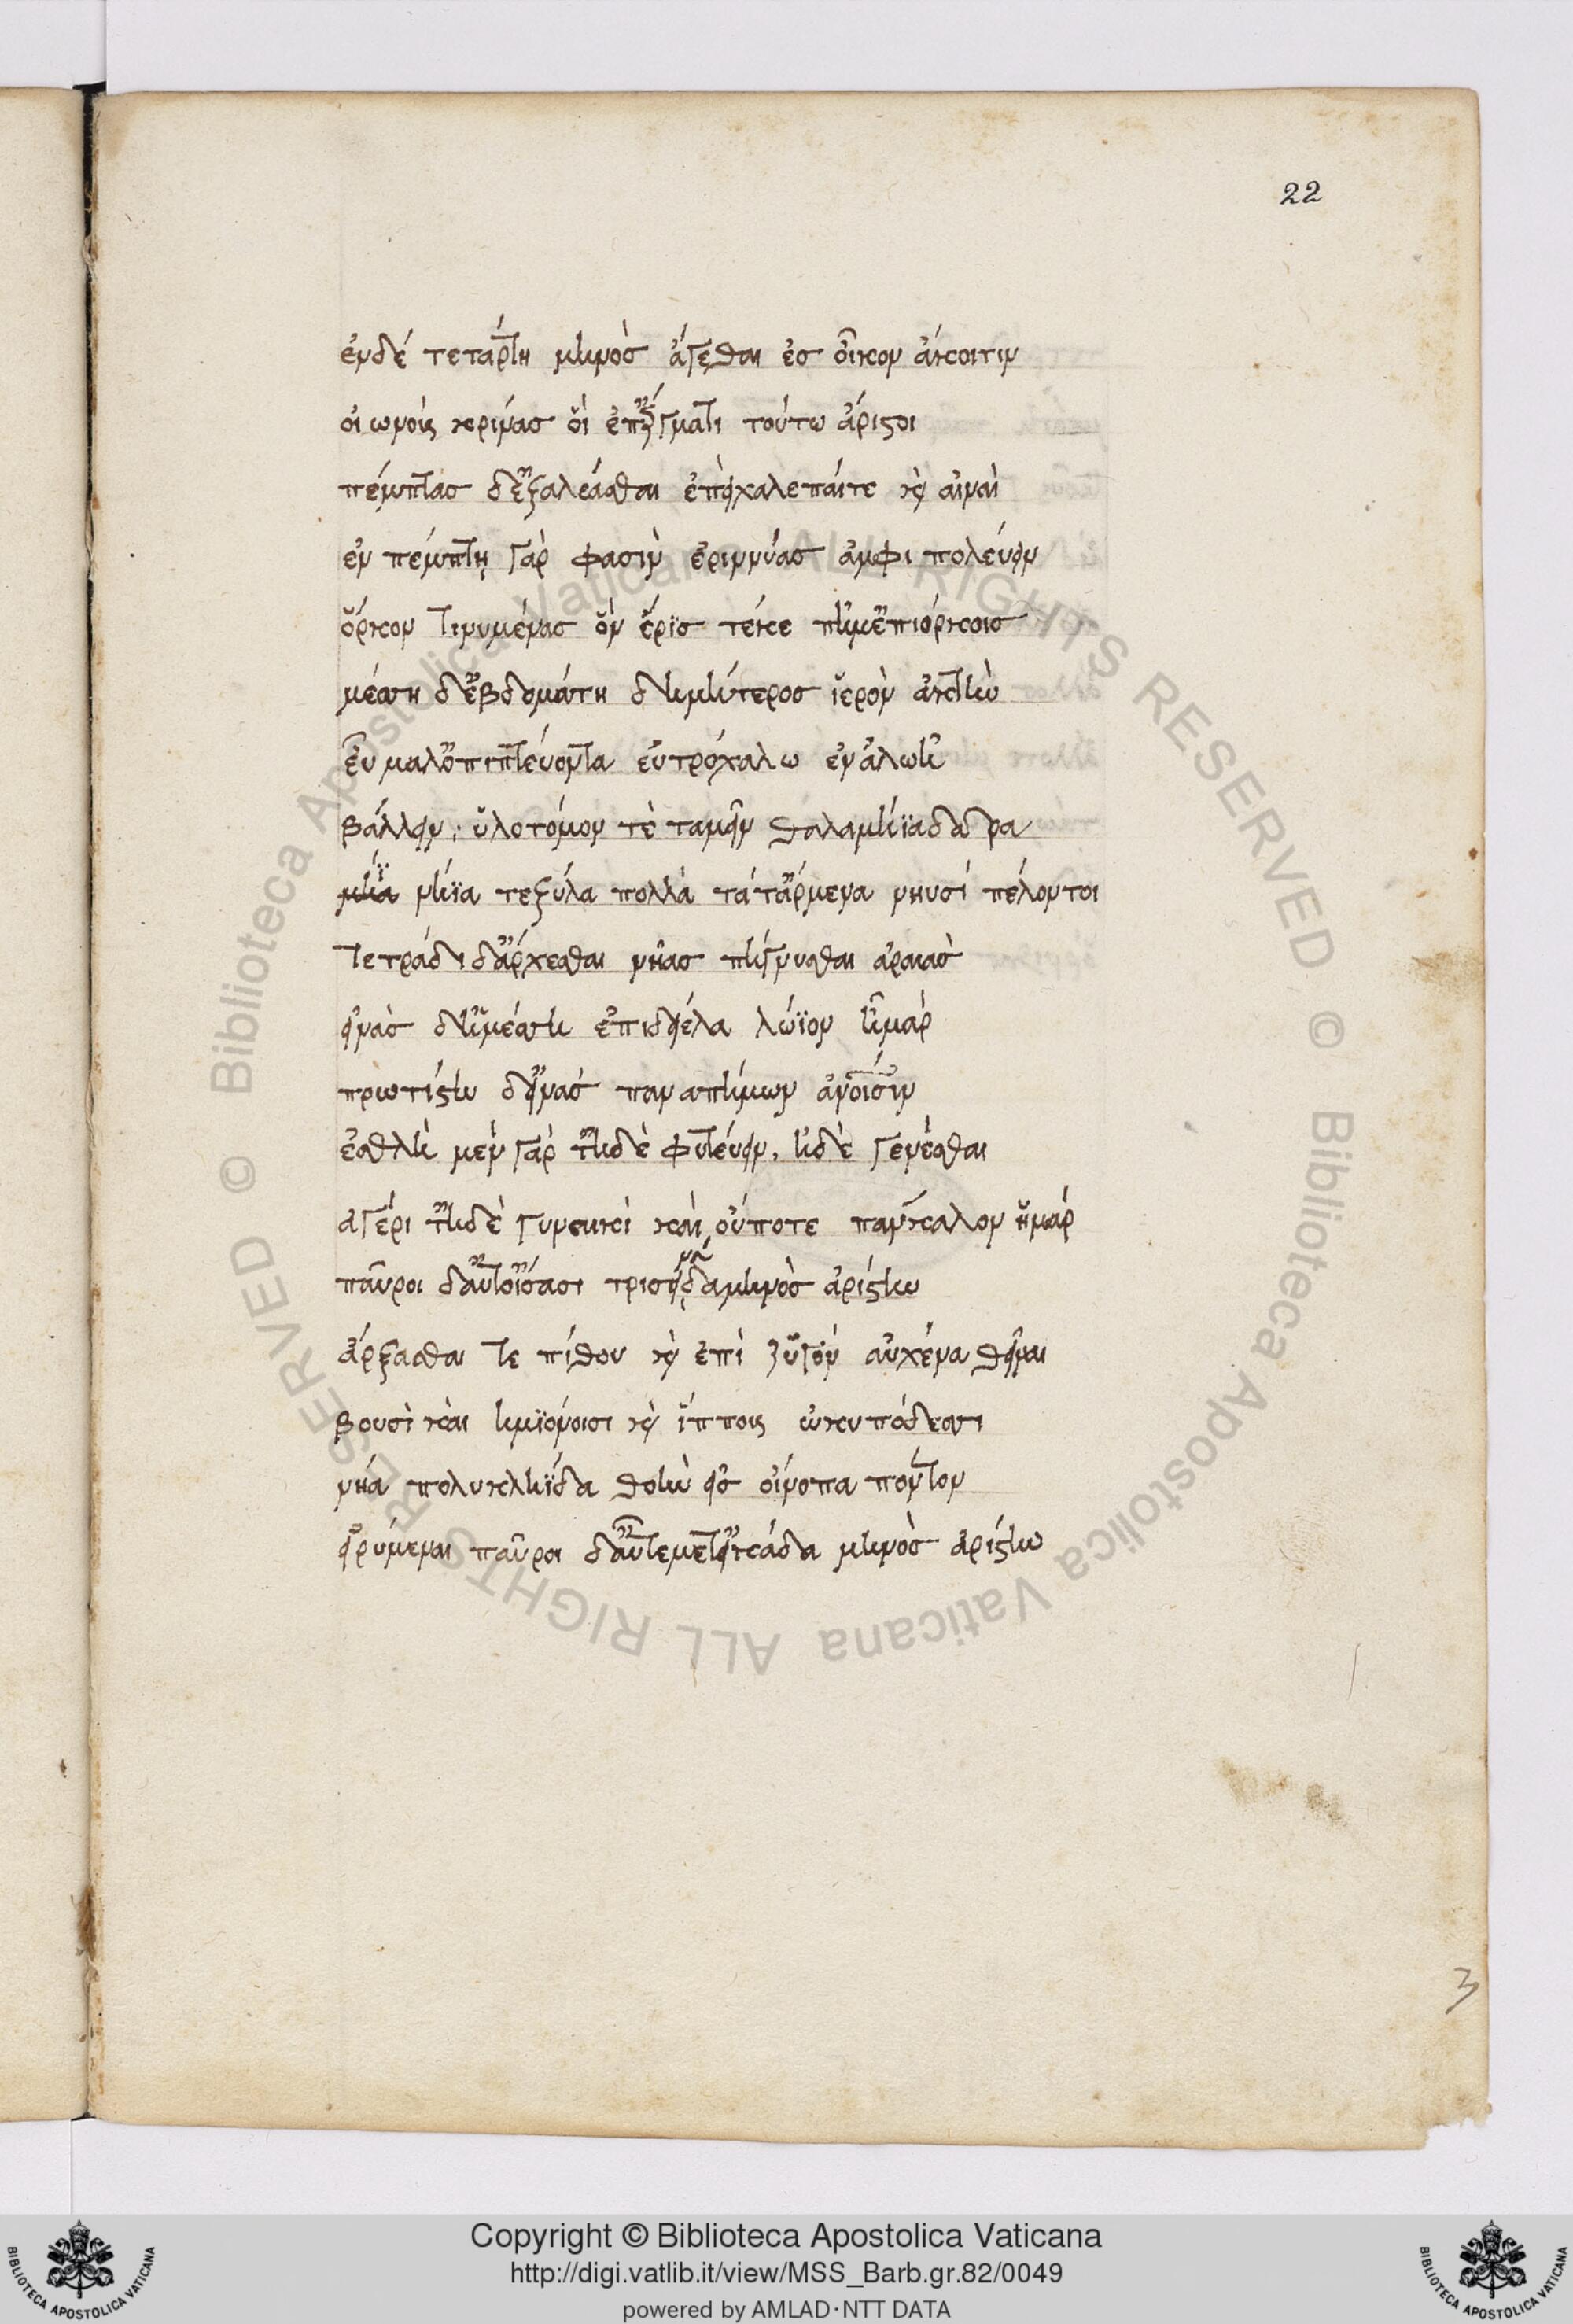 22
ἐνδέ τετάρτη μηνὸσ ἄγεσθαι ἐσ οἶκον ἄκοιτιν
οἰωνοὶς κρίνασ ὅι ἐπἔργματι τούτω ἄριστοι
πέμπτασ δἐξαλέασθαι ἐπεὶ χαλεπάιτε καὶ αἰναὶ
ἐν πέμπτῃ γὰρ φασὶν ἐριννύασ ἀμφιπολεύειν
ὅρκον τιννυμένασ ὃν ἔρϊσ τέκε πῆμἐπιόρκοισ
μέσση δἑβδομάτη δημήτεροσ ἱερὸν ἀκτὴν
εὖ μαλὀπιπτεύοντα εὐτροχάλω ἐν ἀλωῆ
βάλλειν· ὑλοτόμον τὲ ταμεῖν θαλαμήϊα δοῦρα
νήϊα τεξύλα πολλὰ τάτἄρμενα νηυσί πέλονται
τετράδι δἄρχεσθαι νῆασ πήγνυσθαι ἀραιασ
εἰνὰσ δἡμέσση ἐπιδείελα λώϊον ἦμαρ
πρωτίστη δεἰνασ παναπήμων ἀν̅ο̅ι̅σιν
ἐσθλὴ μὲν γὰρ τἠδὲ φυτεύειν, ἠδὲ γενέσθαι
ἀνέρι τἠδὲ γυναικί καὶ, οὔποτε πάνκαλον ἦμαρ
παῦροι δἀῦτοἴσασι τρισεινάδα μηνὸσ ἀρίστην
ἄρξασθαι τε πίθου καὶ ἐπὶ ζυγὸν αὐχένα θεῖναι
βουσὶ καὶ ἡμϊόνοισι καὶ ἵπποις ὠκυπόδεσσι
νῆα πολυκλήϊδα θοὴν εἰσ οἴνοπα πόντον
εἰρύμεναι παῦροι δἀῦτεμετεἰκάδα μηνὸσ ἀρίστην
3
Copyright © Biblioteca Apostolica Vaticana
http://digi.vatlib.it/view/MSS_Barb.gr.82/0049
powered by AMLAD·NTT DATA
BIBLIOTECA APOSTOLICA VATICANA
BIBLIOTECA APOSTOLICA VATICANA
© Biblioteca Apostolica Vaticana ALL RIGHTS RESERVED © Biblioteca Apostolica Vaticana ALL RIGHTS RESERVED